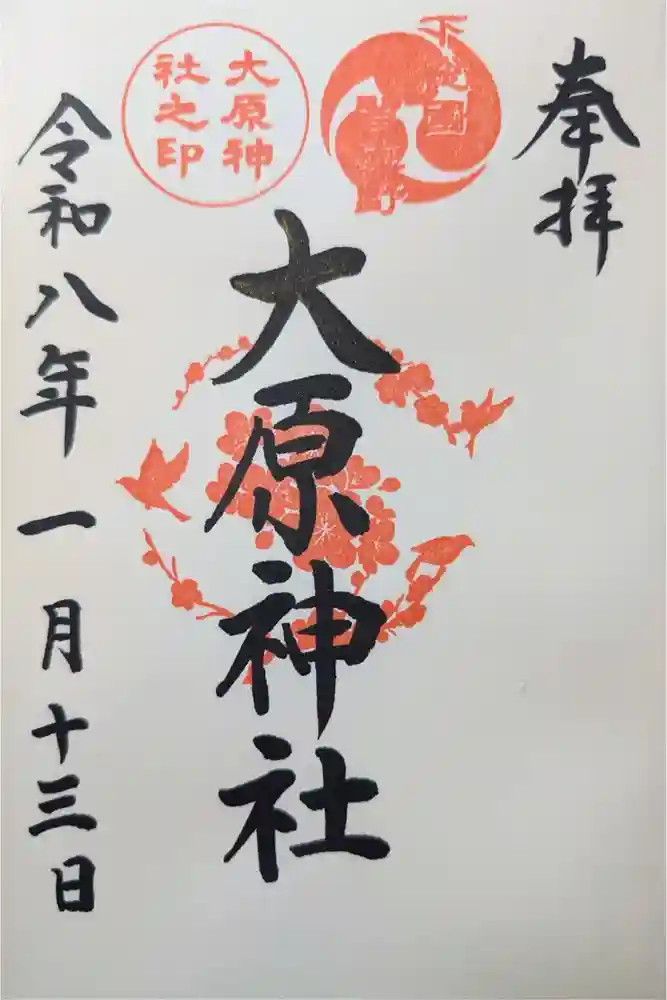 奉拝
下総國
大原神社
大原神
社之印
令和八年一月十三日